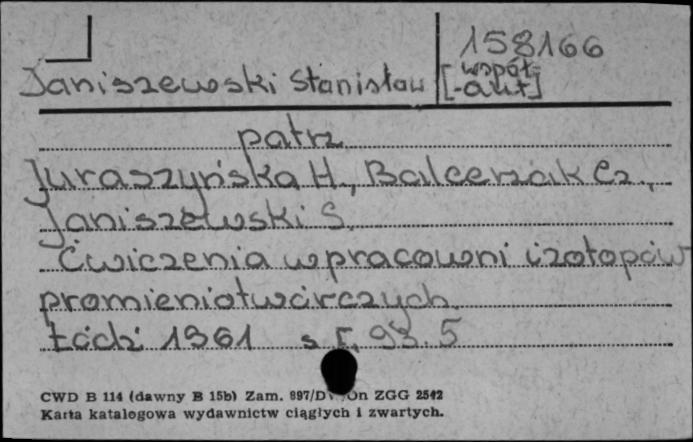 158166
Janiszewski Stanisław [współ-
-aut]
patrz
Juraszyńska H., Balcerzak Cz.,
Janiszewski S.
Ćwiczenia w pracowni izotopów
promieniotwórczych.
Łódź 1961 s. 93. 5
CWD B 114 (dawny B 15b) Zam. 897/D ZGG 2542
Karta katalogowa wydawnictw ciągłych i zwartych.